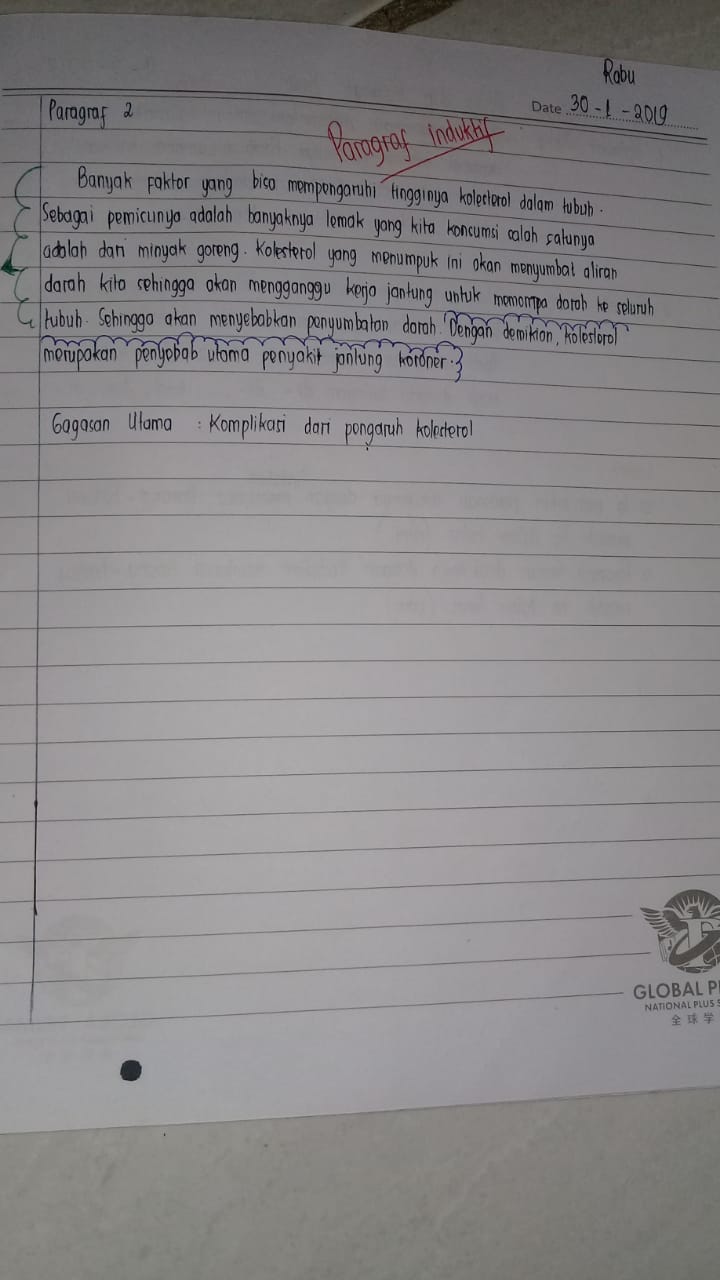 Rabu
Date 30-1-2019
Paragraf 2
Paragraf induktif
Banyak faktor yang bisa mempengaruhi tingginya kolesterol dalam tubuh.
Sebagai pemicunya adalah banyaknya lemak yang kita konsumsi salah satunya
adalah dari minyak goreng. Kolesterol yang menumpuk ini akan menyumbat aliran
darah kita sehingga akan mengganggu kerja jantung untuk memompa darah ke seluruh
tubuh. Sehingga akan menyebabkan penyumbatan darah. Dengan demikian, kolesterol
merupakan penyebab utama penyakit jantung koroner.
Gagasan Utama : Komplikasi dari pengaruh kolesterol
GLOBAL
NATIONAL PLUS
全球学